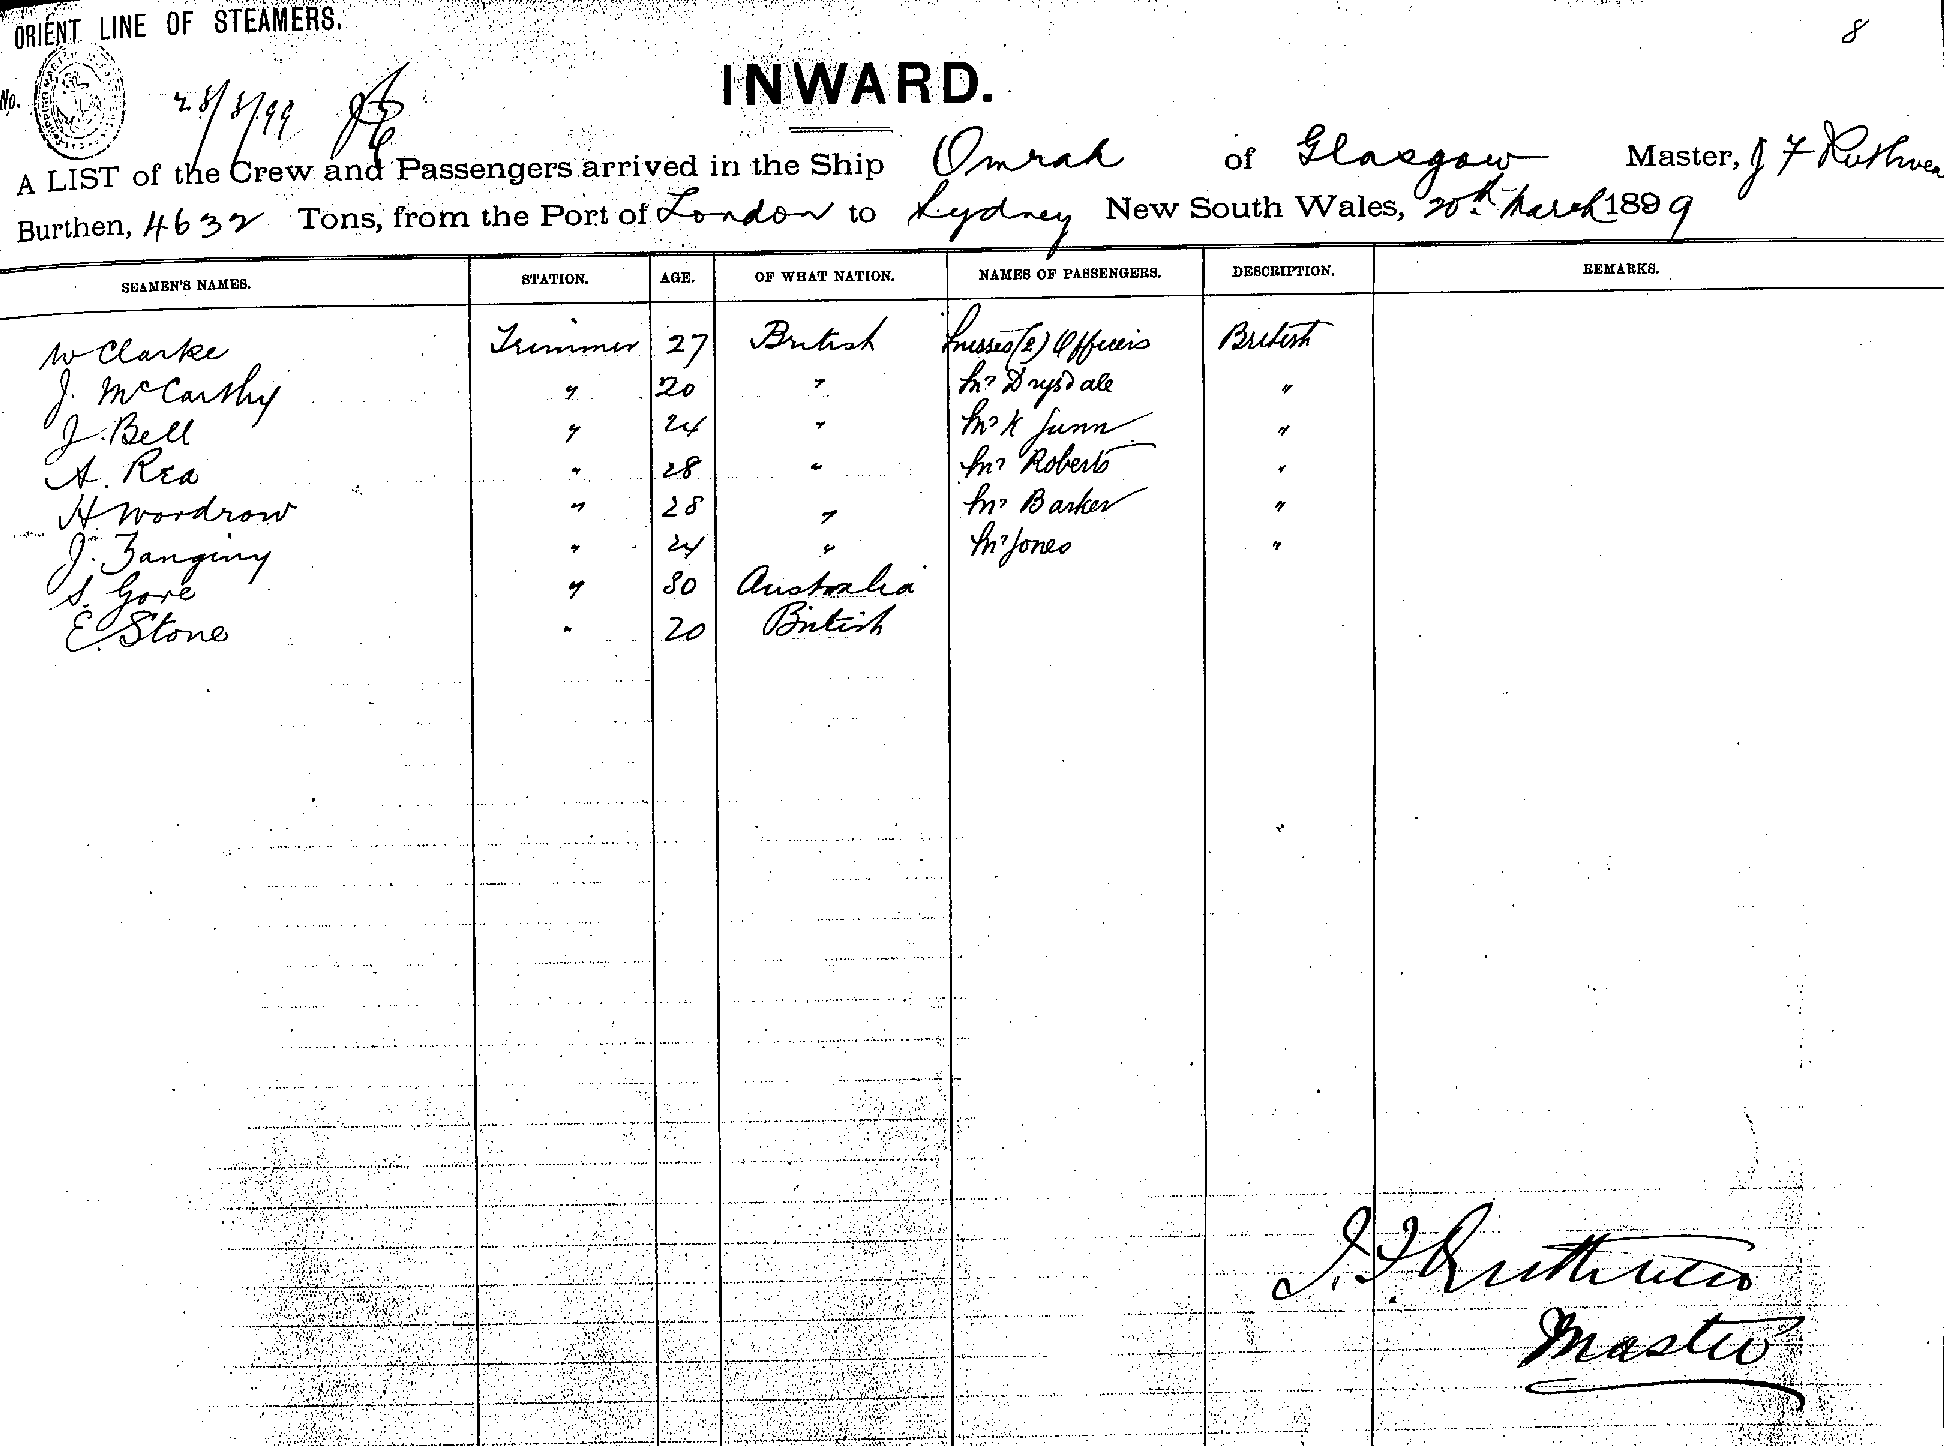 ORIENT LINE OF STEAMERS.
8
No.
28/3/99
INWARD.
A LIST of the Crew and Passengers arrived in the Ship Omrah of Glasgow Master, J F Ruthven
Burthen, 4632 Tons, from the Port of London to Sydney New South Wales, 20th March 1899
SEAMEN'S NAMES. STATION. AGE. OF WHAT NATION. NAMES OF PASSENGERS. DESCRIPTION. REMARKS.
W Clarke Trimmer 27 British Misses (2) Officers British
J. McCarthy " 20 " Mr Drysdale "
J. Bell " 24 " Mr K Gunn "
A. Rea " 28 " Mr Roberts "
H Woodrow " 28 " Mr Barker "
J. " 24 " Mr Jones "
S. Gore " 30 Australia
E. Stone " 20 British
J. F. Ruthven
Master